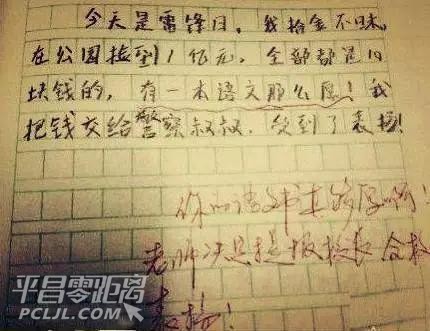 今天是雷锋日，我拾金不昧，
在公园捡到1亿元，全部都是10
块钱的，有一本语文那么厚！我
把钱交给警察叔叔，受到了表扬！
你的语文书真够厚啊！
老师决定提报校长 全校
表扬！
平昌零距离
PCLJL.COM